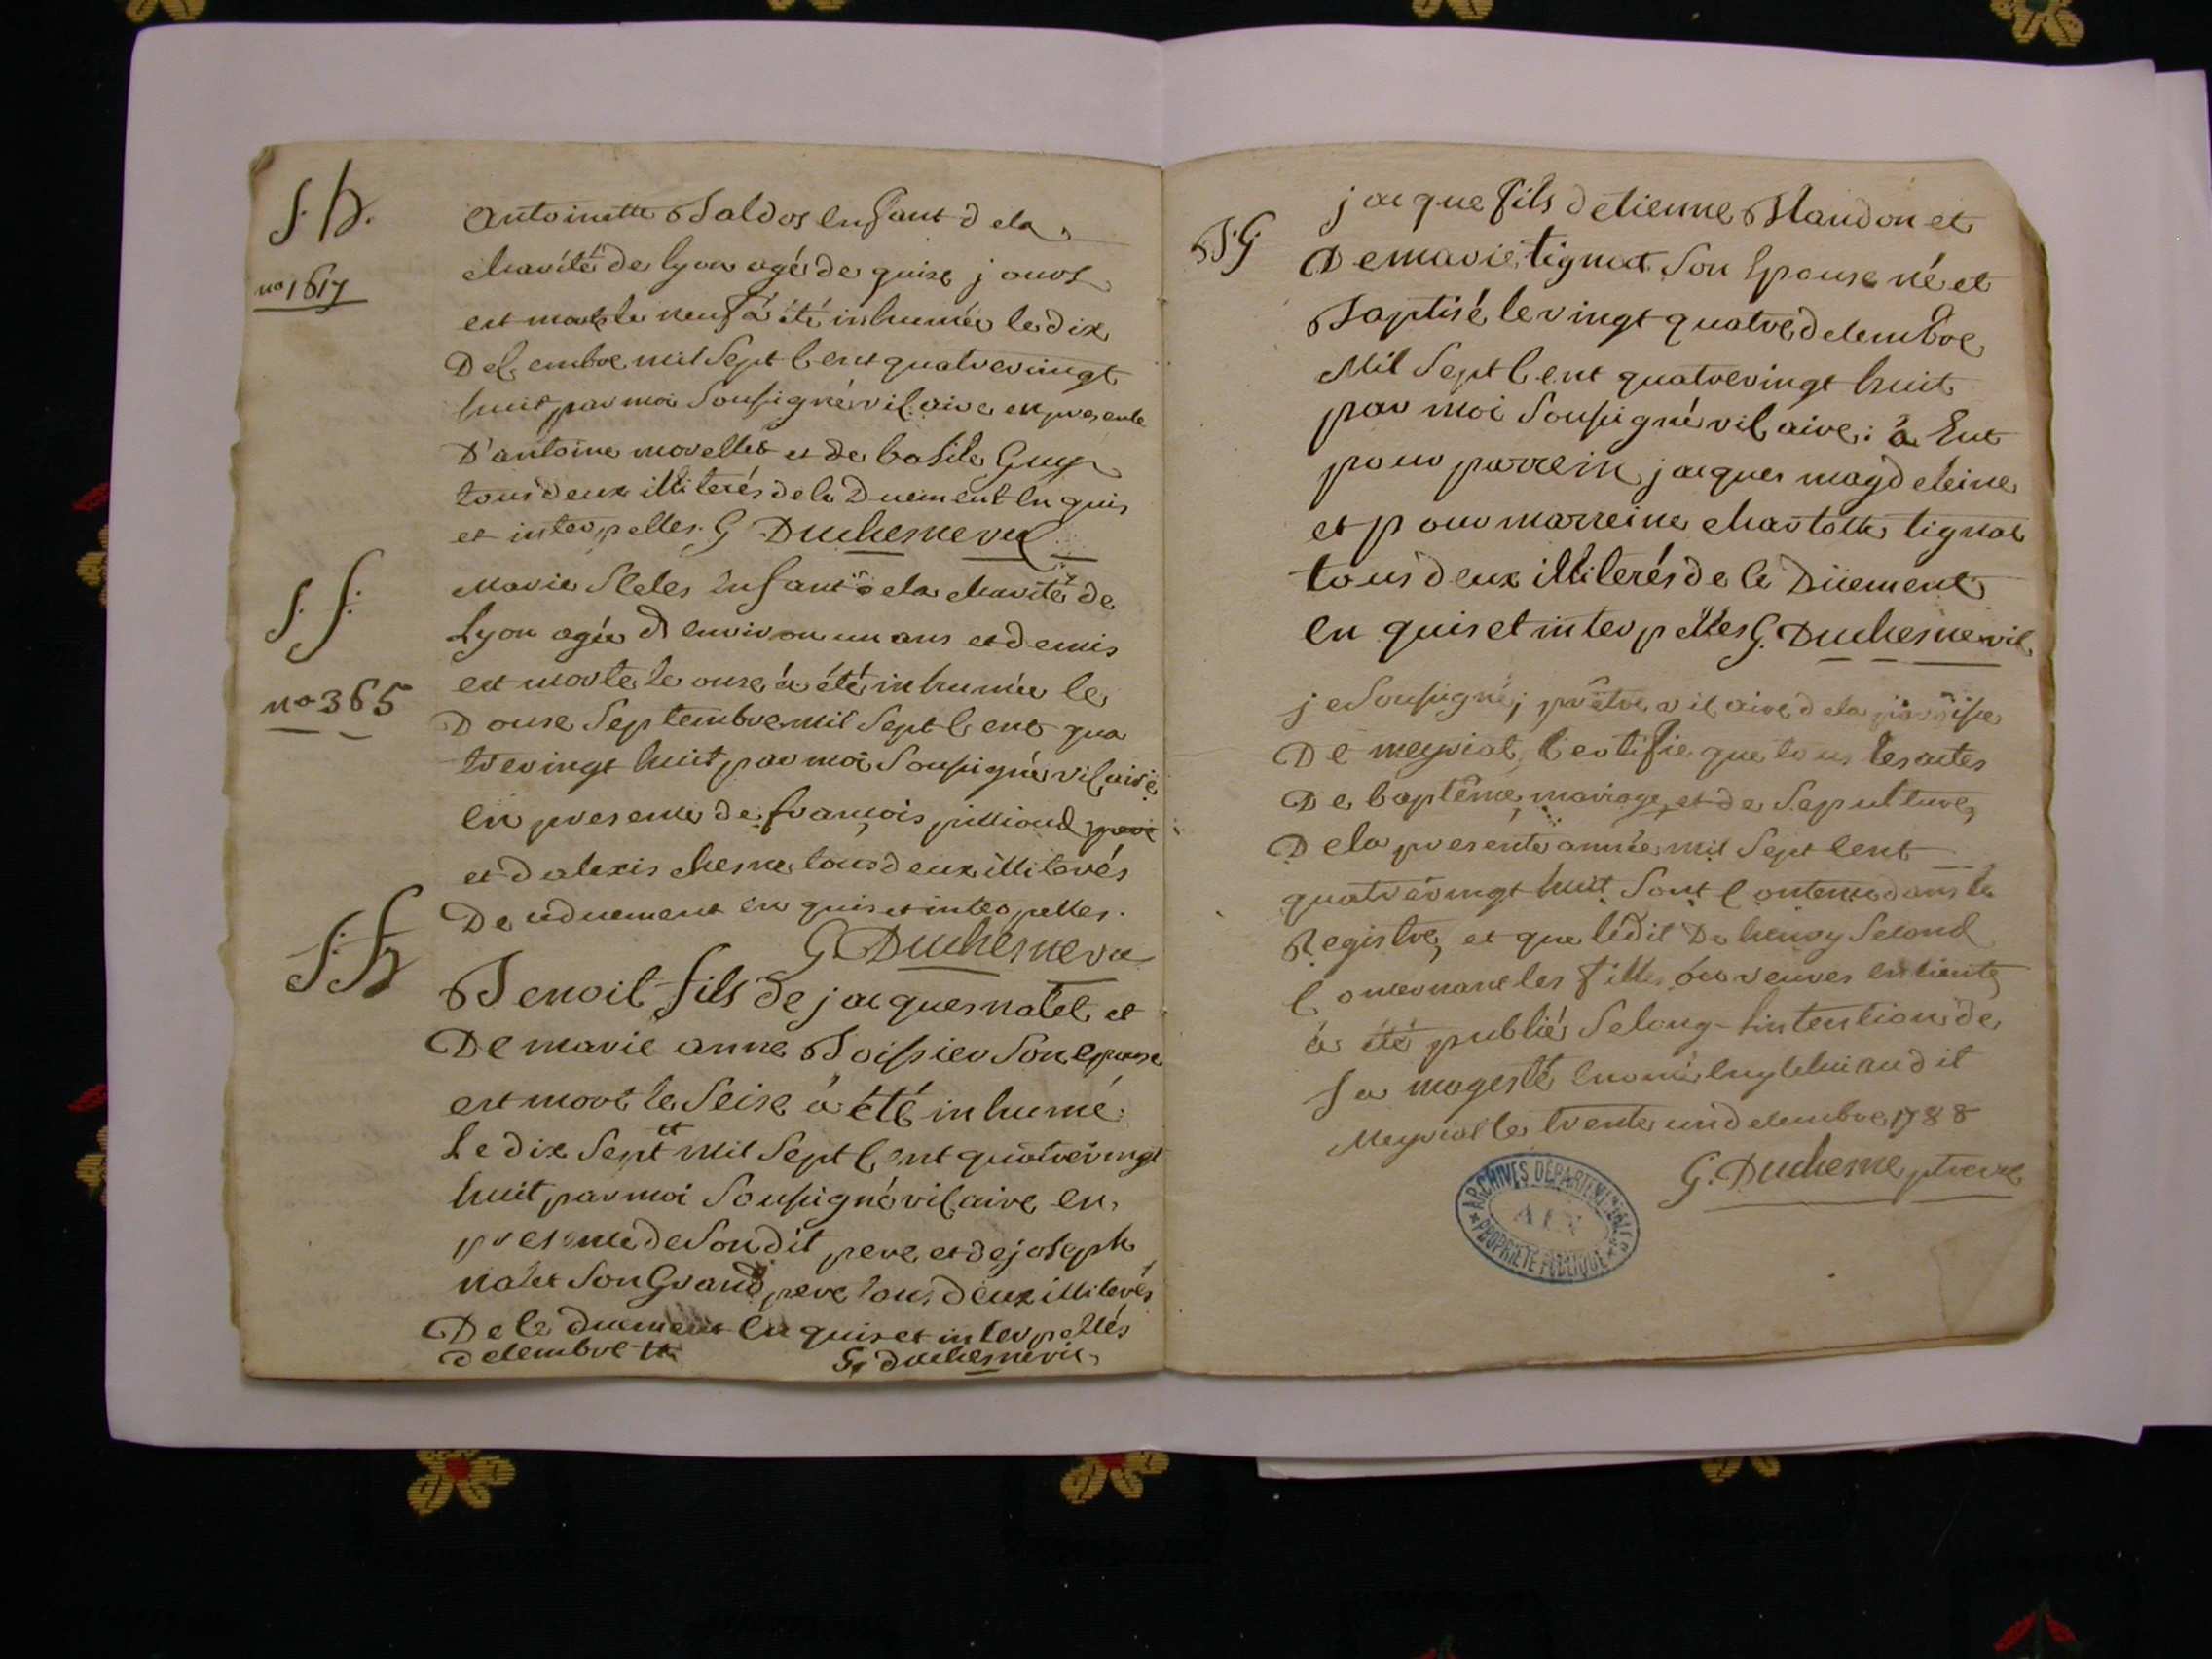 S. h.
no 1617
antoinette Baldos enfant dela
charité de lyon agé de quise jours
est morte le neuf á été inhumée le dix
Decembre mil Sept Cent quatrevingt
huit par moi Sousigné vicaire en presence
D'antoine morellet et de basile Guy
tous deux illiterés de ce Duement enquis
et interpelles. G Duchesne vic
S. f.
no 365
Marie Seles enfant dela charité de
Lyon agée d environ un ans et demis
est morte le onse á été inhumée le
Douse Septembre mil Sept Cent qua
trevingt huit par moi Sousigné vicaire
en presence de françois pillioud
et d alexis chesne tous deux illiterés
De ce duement en quis et interpelles.
G. Duchesne vic
Benoit fils de jacques natel et
De marie anne Boissier Son epouse
est mort le Seise á été inhumé
Le dix Sept tt mil Sept Cent quatrevingt
huit par moi Sousigné vicaire en
presence de Son dit pere et de joseph
natet Son Grand pere tous deux illiterés
De ce duement en quis et interpellés
decembre tt G. duchesne vic
B. G
jacque fils detienne Blaudon et
De marie tignat Son Epouse né et
Baptisé le vingt quatre decembre
Mil Sept Cent quatrevingt huit
par moi Sousigné vicaire: a Eut
pour parrein jacques magdeleine
et pour marreine charlotte tignat
tous deux illiterés de ce Düement
en quis et interpelles G. Duchesne vic
je Sousigné, prêtre vicaire dela paroisse
De meyriat, Certifie que tous les actes
De baptême, mariage, et de Sepulture,
De la presente année mil Sept Cent
quatrevingt huit Sont Contenus dans le
Registre, et que l'edit De henry Second
Concernant les filles ou veuves enceinte
á été publié Selong l'intention de
Sa magesté
Meyriat le trente un decembre 1788
G. Duchesne ptre vic
ARCHIVES DÉPARTEMENTALES
AIN
PROPRIÉTÉ PUBLIQUE